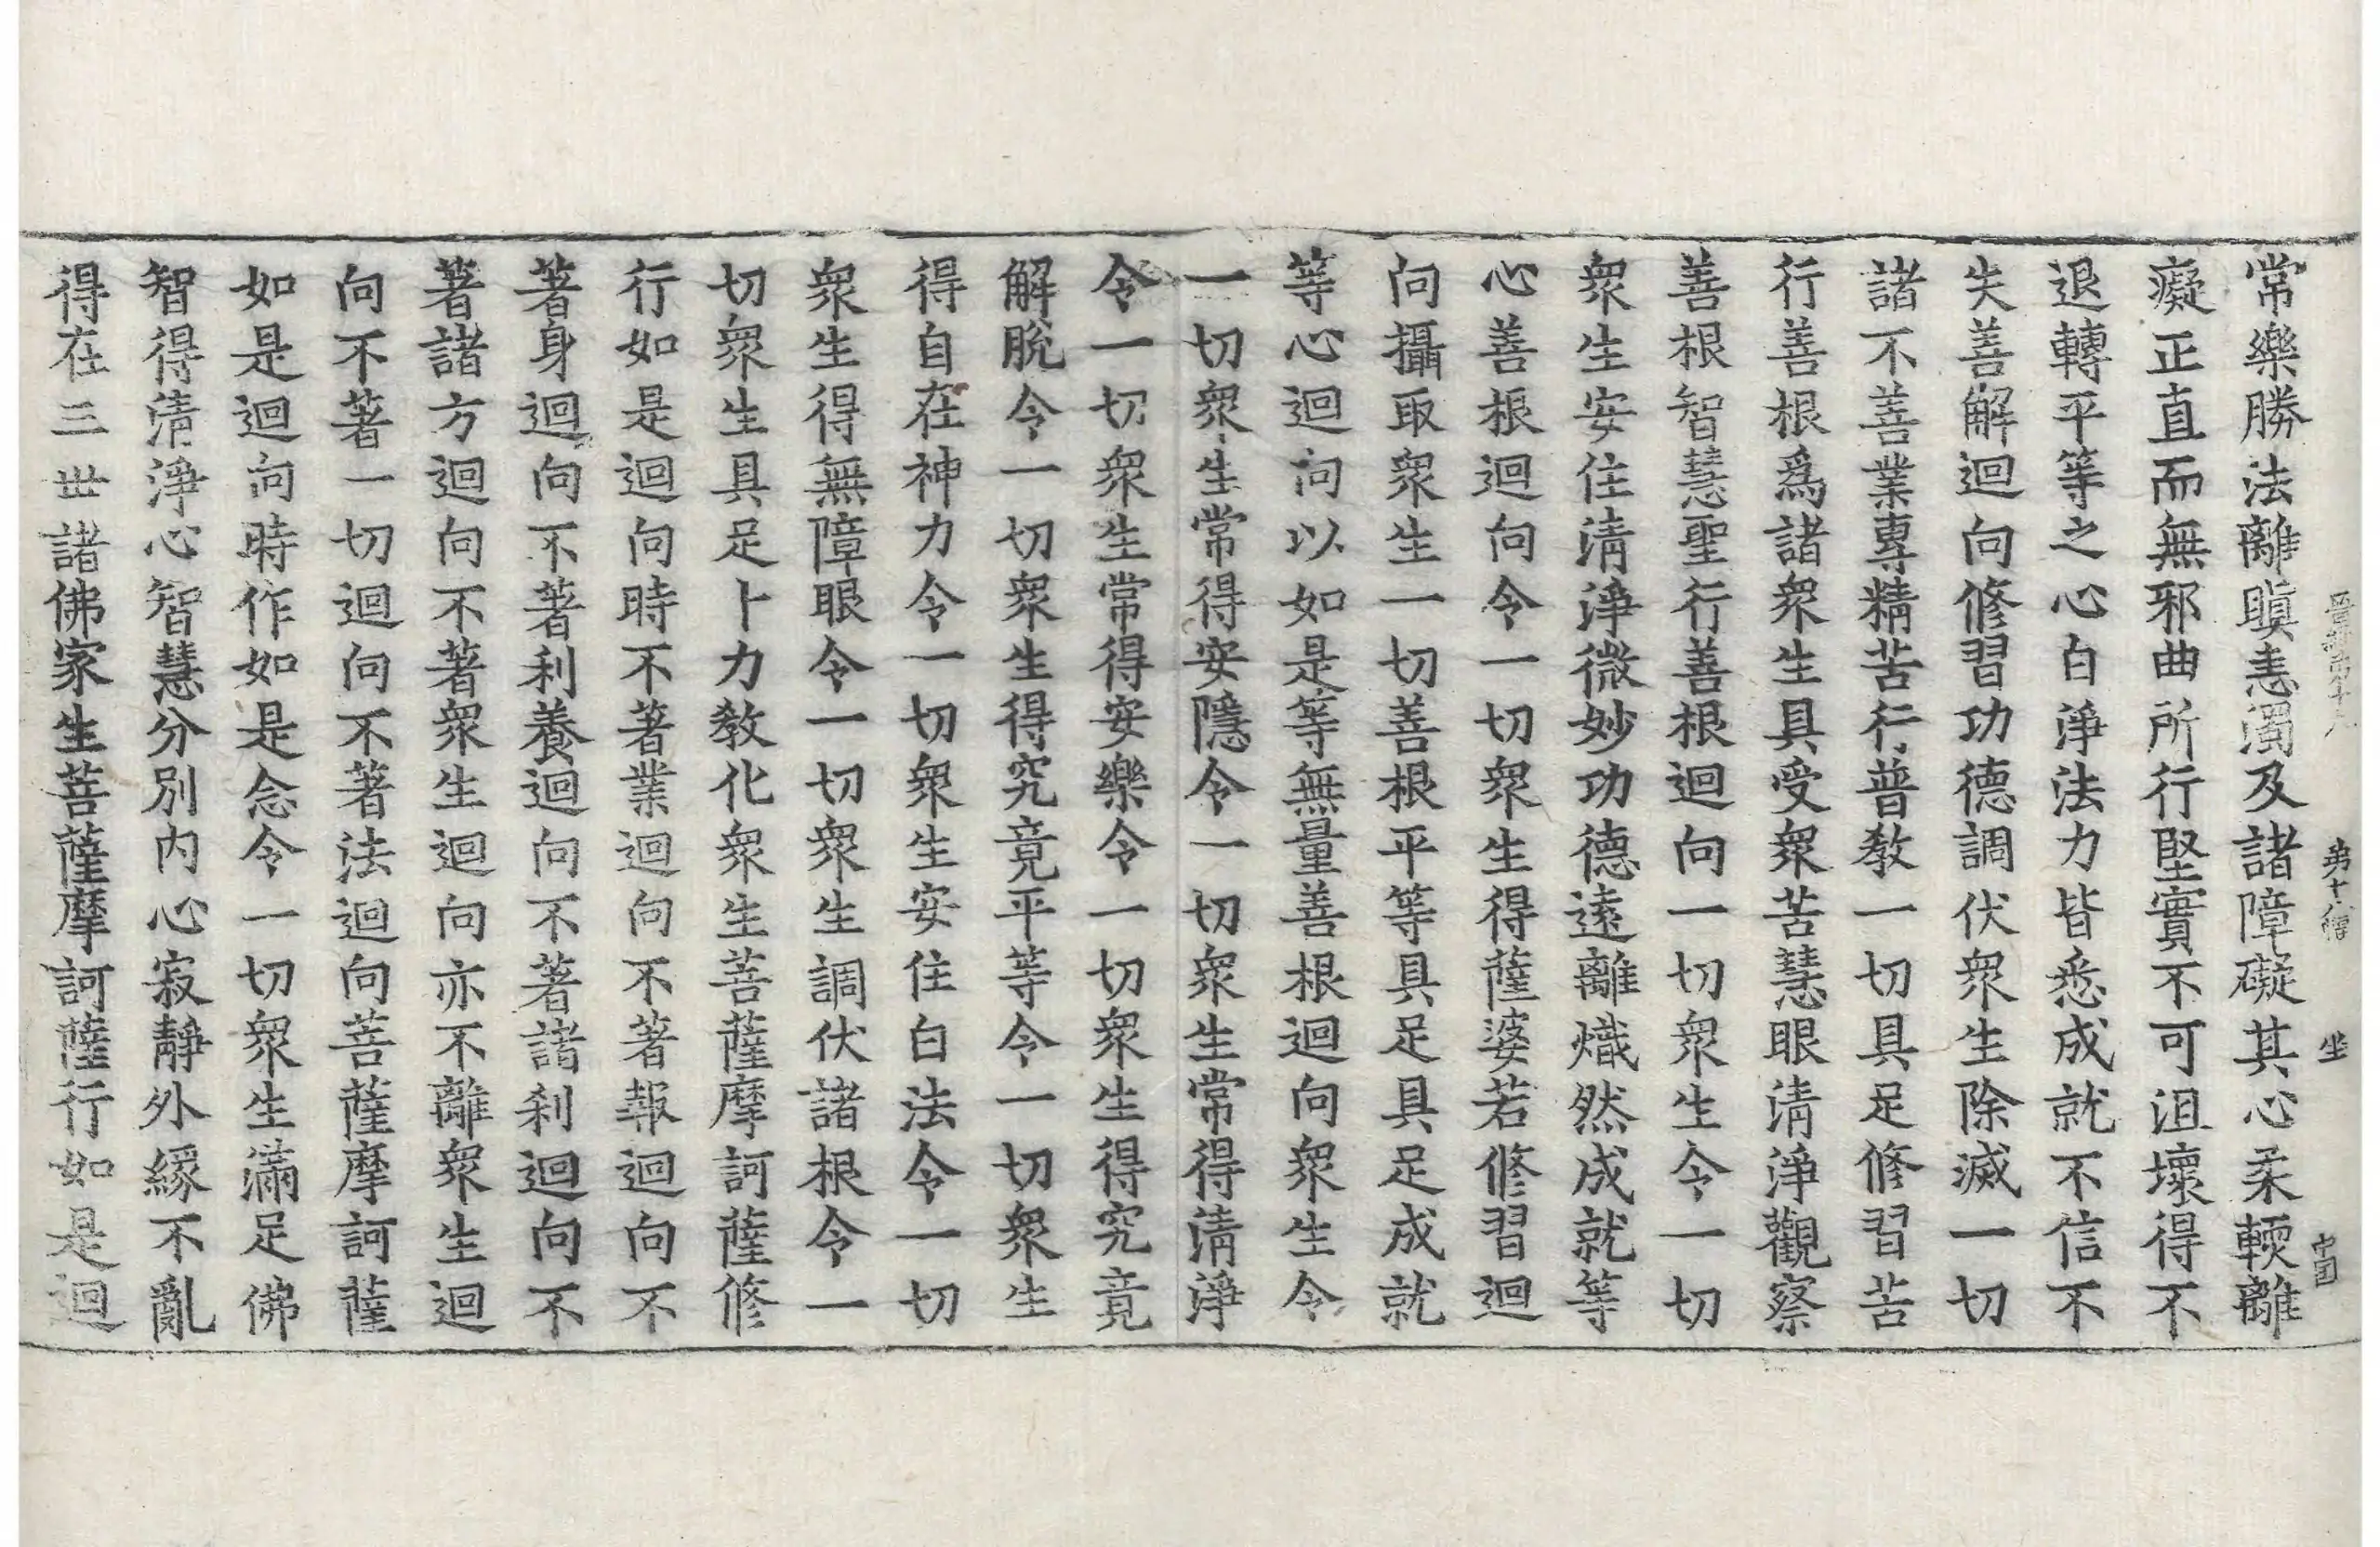 常樂勝法離瞋恚濁及諸障礙其心柔輭離
癡正直而無邪曲所行堅實不可沮壞得不
退轉平等之心白淨法力皆悉成就不信不
失善解迴向修習功德調伏衆生除滅一切
諸不善業專精苦行普教一切具足修習苦
行善根爲諸衆生具受衆苦慧眼清淨觀察
善根智慧聖行善根迴向一切衆生令一切
衆生安住清淨微妙功德遠離熾然成就等
心善根迴向令一切衆生得薩婆若修習迴
向攝取衆生一切善根平等具足具足成就
等心迴向以如是等無量善根迴向衆生令
一切衆生常得安隱令一切衆生常得清淨
令一切衆生常得安樂令一切衆生得究竟
解脫令一切衆生得究竟平等令一切衆生
得自在神力令一切衆生安住白法令一切
衆生得無障眼令一切衆生調伏諸根令一
切衆生具足十力教化衆生菩薩摩訶薩修
行如是迴向時不著業迴向不著報迴向不
著身迴向不著利養迴向不著諸刹迴向不
著諸方迴向不著衆生迴向亦不離衆生迴
向不著一切迴向不著法迴向菩薩摩訶薩
如是迴向時作如是念令一切衆生滿足佛
智得清淨心智慧分別內心寂靜外緣不亂
得在三世諸佛家生菩薩摩訶薩行如是迴